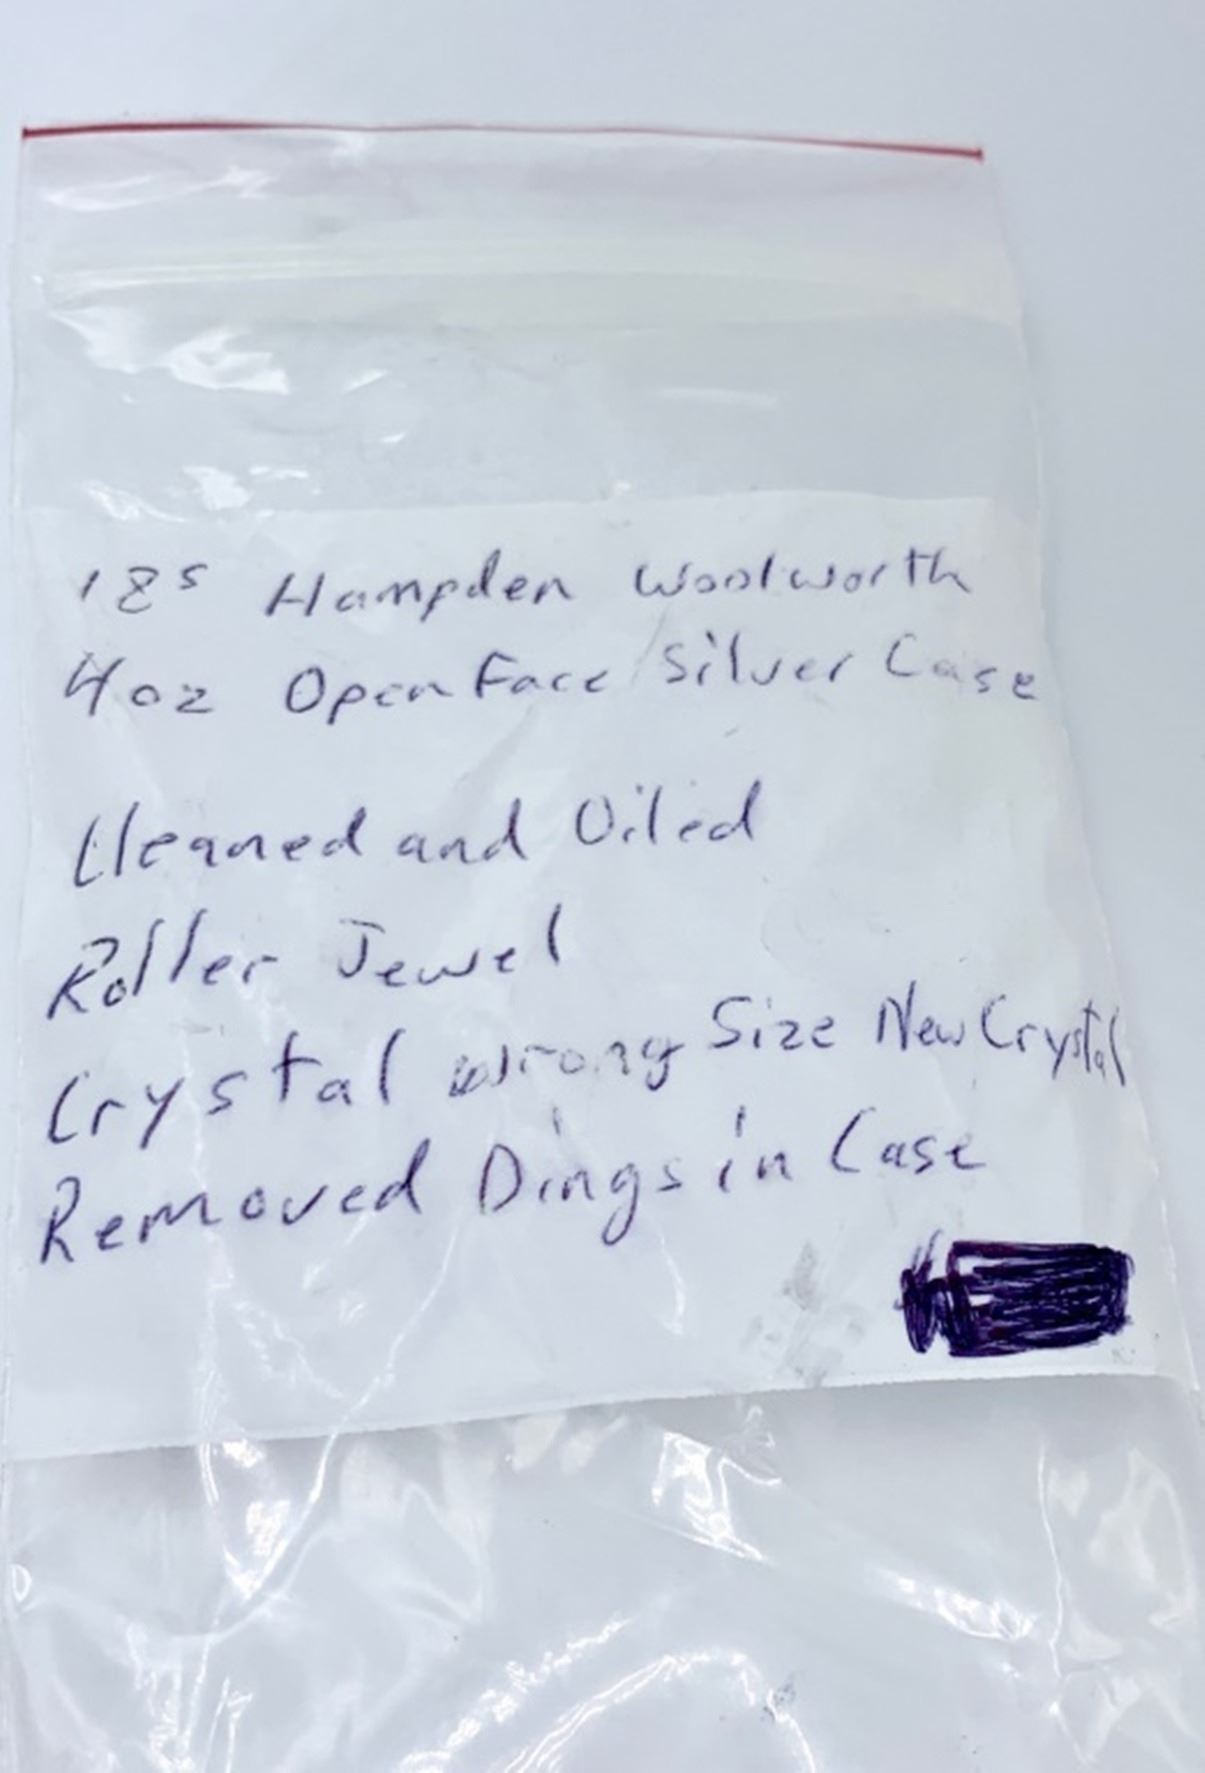 18s Hampden Woolworth
4oz Open Face Silver Case
Cleaned and Oiled
Roller Jewel
Crystal wrong Size New Crystal
Removed Dings in Case